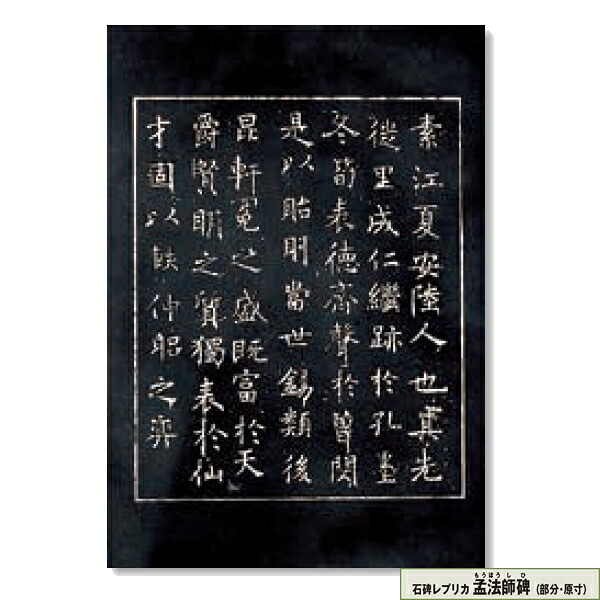 素江夏安陸人也其先
徙里成仁繼跡於孔孟
冬筍表德齊聲於曾閔
是以貽則當世錫類後
昆軒冕之盛既富於天
爵賢明之質獨表於仙
才固以軼仲昭之弈
石碑レプリカ 孟法師碑（部分・原寸）
もうほうしひ